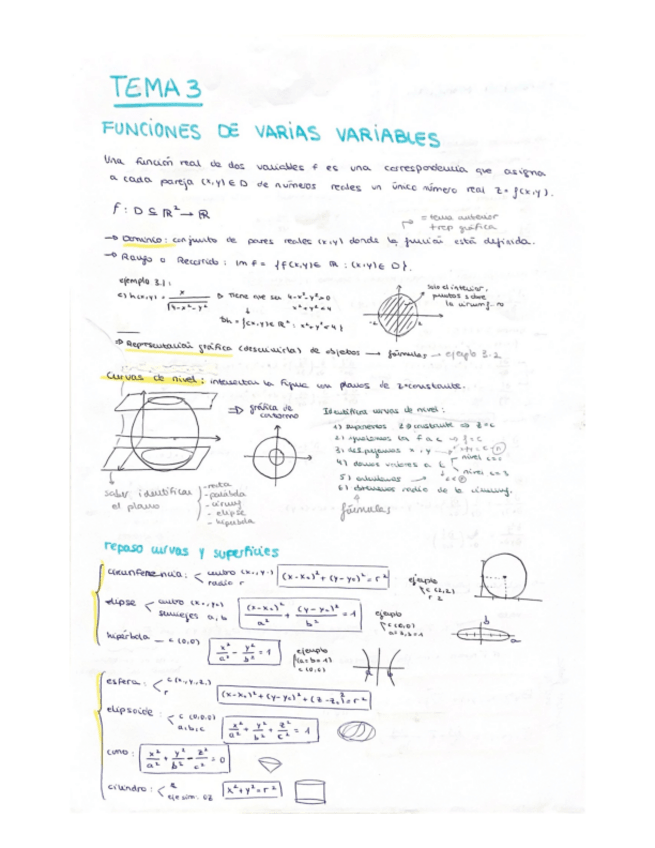 TEMA 3
FUNCIONES DE VARIAS VARIABLES
Una función real de dos variables f es una correspondencia que asigna
a cada pareja (x,y) ∈ D de números reales un único número real z = f(x,y).
f : D ⊆ ℝ² → ℝ
= tema anterior
+ rep gráfica
→ Dominio: conjunto de pares reales (x,y) donde la función está definida.
→ Rango o Recorrido: Im f = {f(x,y) ∈ ℝ : (x,y) ∈ D}.
ejemplo 3.1:
c) h(x,y) = x / √(4-x²-y²) → Tiene que ser 4-x²-y²>0
x²+y²<4
Dh = {(x,y) ∈ ℝ² : x²+y²<4}
solo el interior,
puntos sobre
la circunf. no
-2 2
⇒ Representación gráfica (descubrirla) de objetos → fórmulas → ejemplo 3.2
Curvas de nivel: intersectan la figura con planos de z=constante.
⇒ gráfica de
contorno
Identificar curvas de nivel:
1) suponemos z=constante ⇒ z=c
2) igualamos la f a c → f=c
3) despejamos x, y
4) damos valores a
nivel c=3
5) calculamos
6) obtenemos radio de la circunf.
fórmulas
saber identificar
el plano
- recta
- parábola
- circunf
- elipse
- hipérbola
repaso curvas y superficies
circunferencia: centro (x₀,y₀)
radio r
(x-x₀)² + (y-y₀)² = r²
ejemplo
c (2,2)
r 2
elipse centro (x₀,y₀)
semiejes a, b
(x-x₀)²/a² + (y-y₀)²/b² = 1
ejemplo
c(0,0)
b
a
hipérbola - c (0,0)
x²/a² - y²/b² = 1
ejemplo
(a=b=1)
c(0,0)
esfera: c(x₀,y₀,z₀)
r
(x-x₀)² + (y-y₀)² + (z-z₀)² = r²
elipsoide: c (0,0,0)
a, b, c
x²/a² + y²/b² + z²/c² = 1
cono: x²/a² + y²/b² - z²/c² = 0
cilindro: r
eje sim. OZ
x² + y² = r²